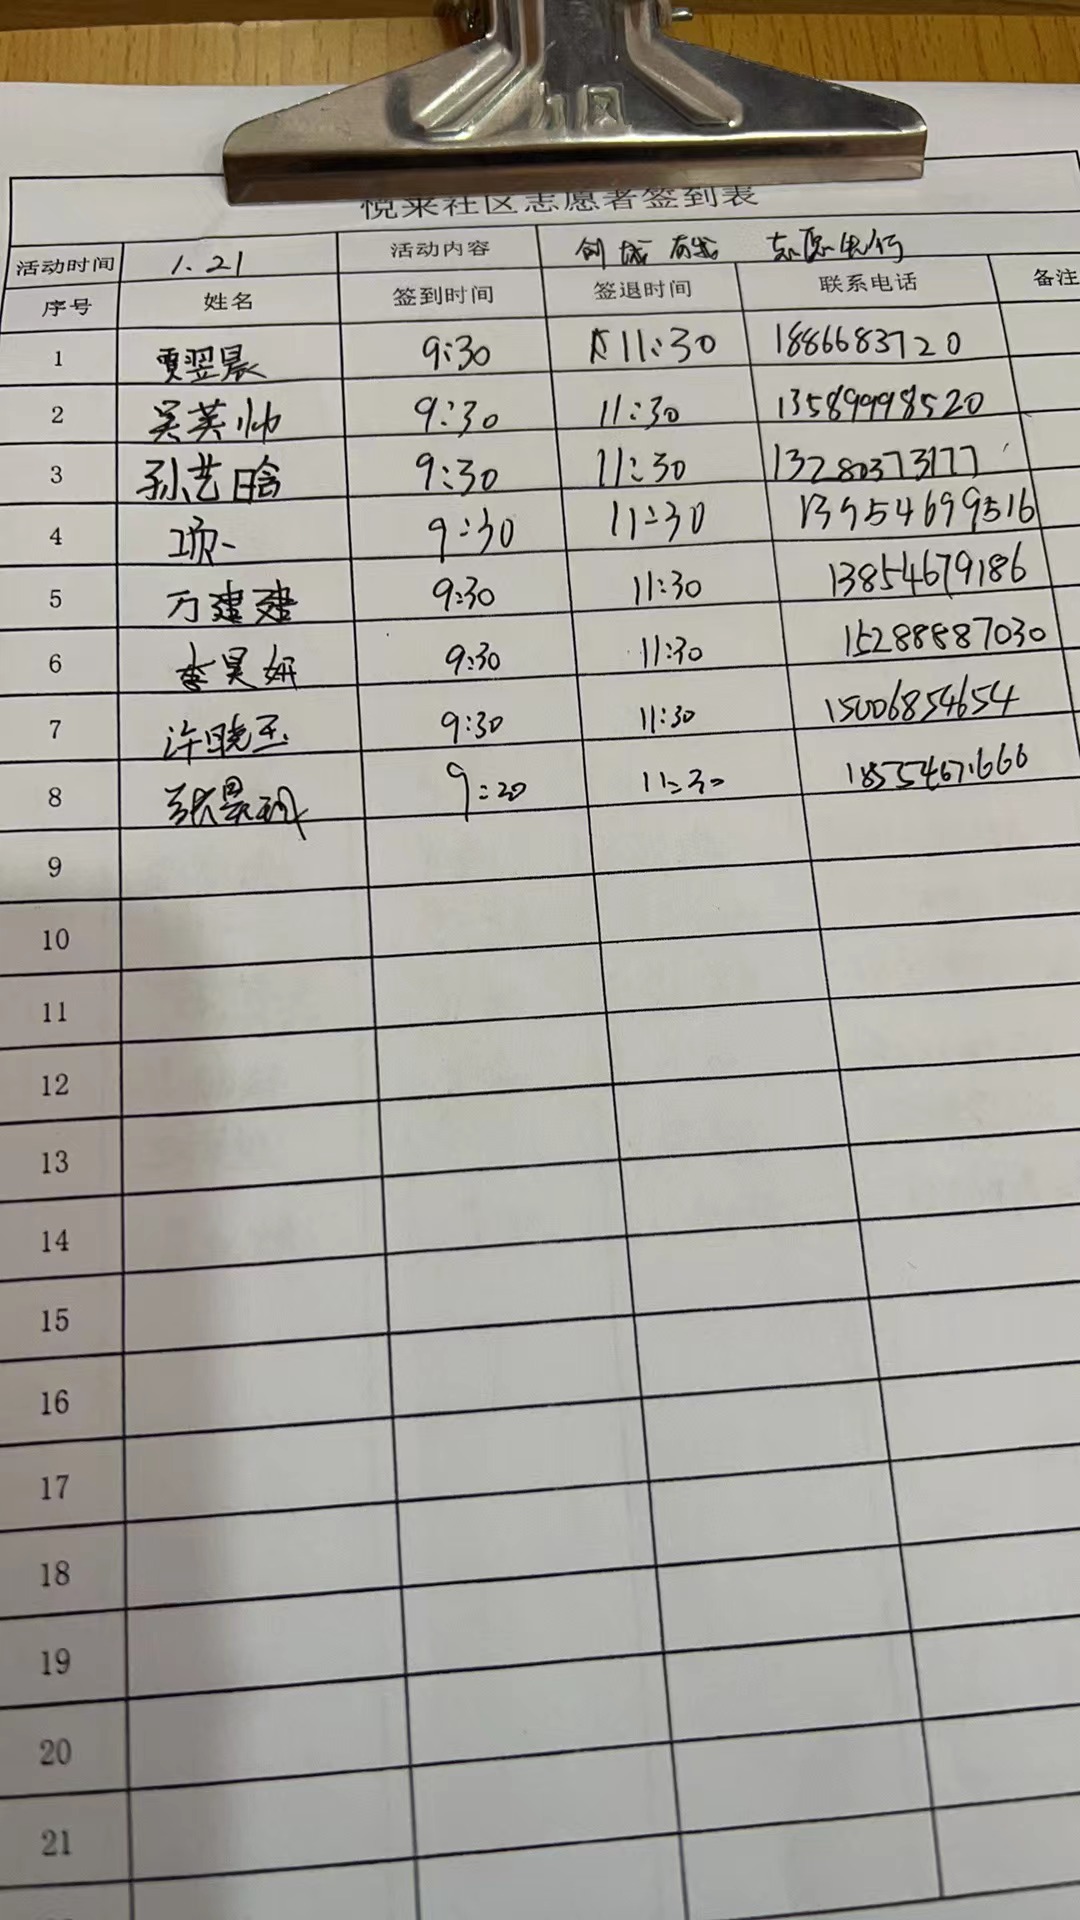 悦来社区志愿者签到表
活动时间 1.21 活动内容 创城有我 志愿先行
序号 姓名 签到时间 签退时间 联系电话 备注
1 贾翌晨 9:30 11:30 18866837120
2 吴英帅 9:30 11:30 13589998520
3 孙艺晗 9:30 11:30 13280373177
4 项一 9:30 11:30 13954699516
5 万建建 9:30 11:30 13854679186
6 李昊妍 9:30 11:30 15288887030
7 许晓玉 9:30 11:30 15006854654
8 9:30 11:30 18554671666
9
10
11
12
13
14
15
16
17
18
19
20
21